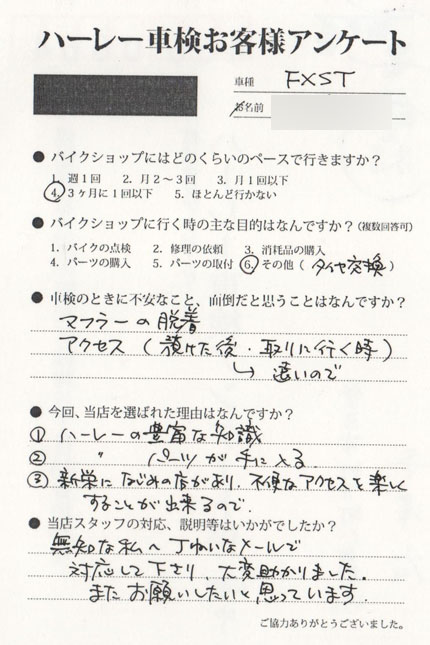 ハーレー車検お客様アンケート
車種 FXST
お名前
● バイクショップにはどのくらいのペースで行きますか？
1. 週1回 2. 月2〜3回 3. 月1回以下
4. 3ヶ月に1回以下 5. ほとんど行かない
● バイクショップに行く時の主な目的はなんですか？(複数回答可)
1. バイクの点検 2. 修理の依頼 3. 消耗品の購入
4. パーツの購入 5. パーツの取付 6. その他（ タイヤ交換 ）
● 車検のときに不安なこと、面倒だと思うことはなんですか？
マフラーの脱着
アクセス（預けた後・取りに行く時）
↳ 遠いので
● 今回、当店を選ばれた理由はなんですか？
① ハーレーの豊富な知識
② 〃 パーツが手に入る.
③ 新栄になじみの店があり、不便なアクセスを楽しく
することが出来るので.
● 当店スタッフの対応、説明等はいかがでしたか？
無知な私へ丁ねいなメールで
対応して下さり、大変助かりました.
またお願いしたいと思っています.
ご協力ありがとうございました。